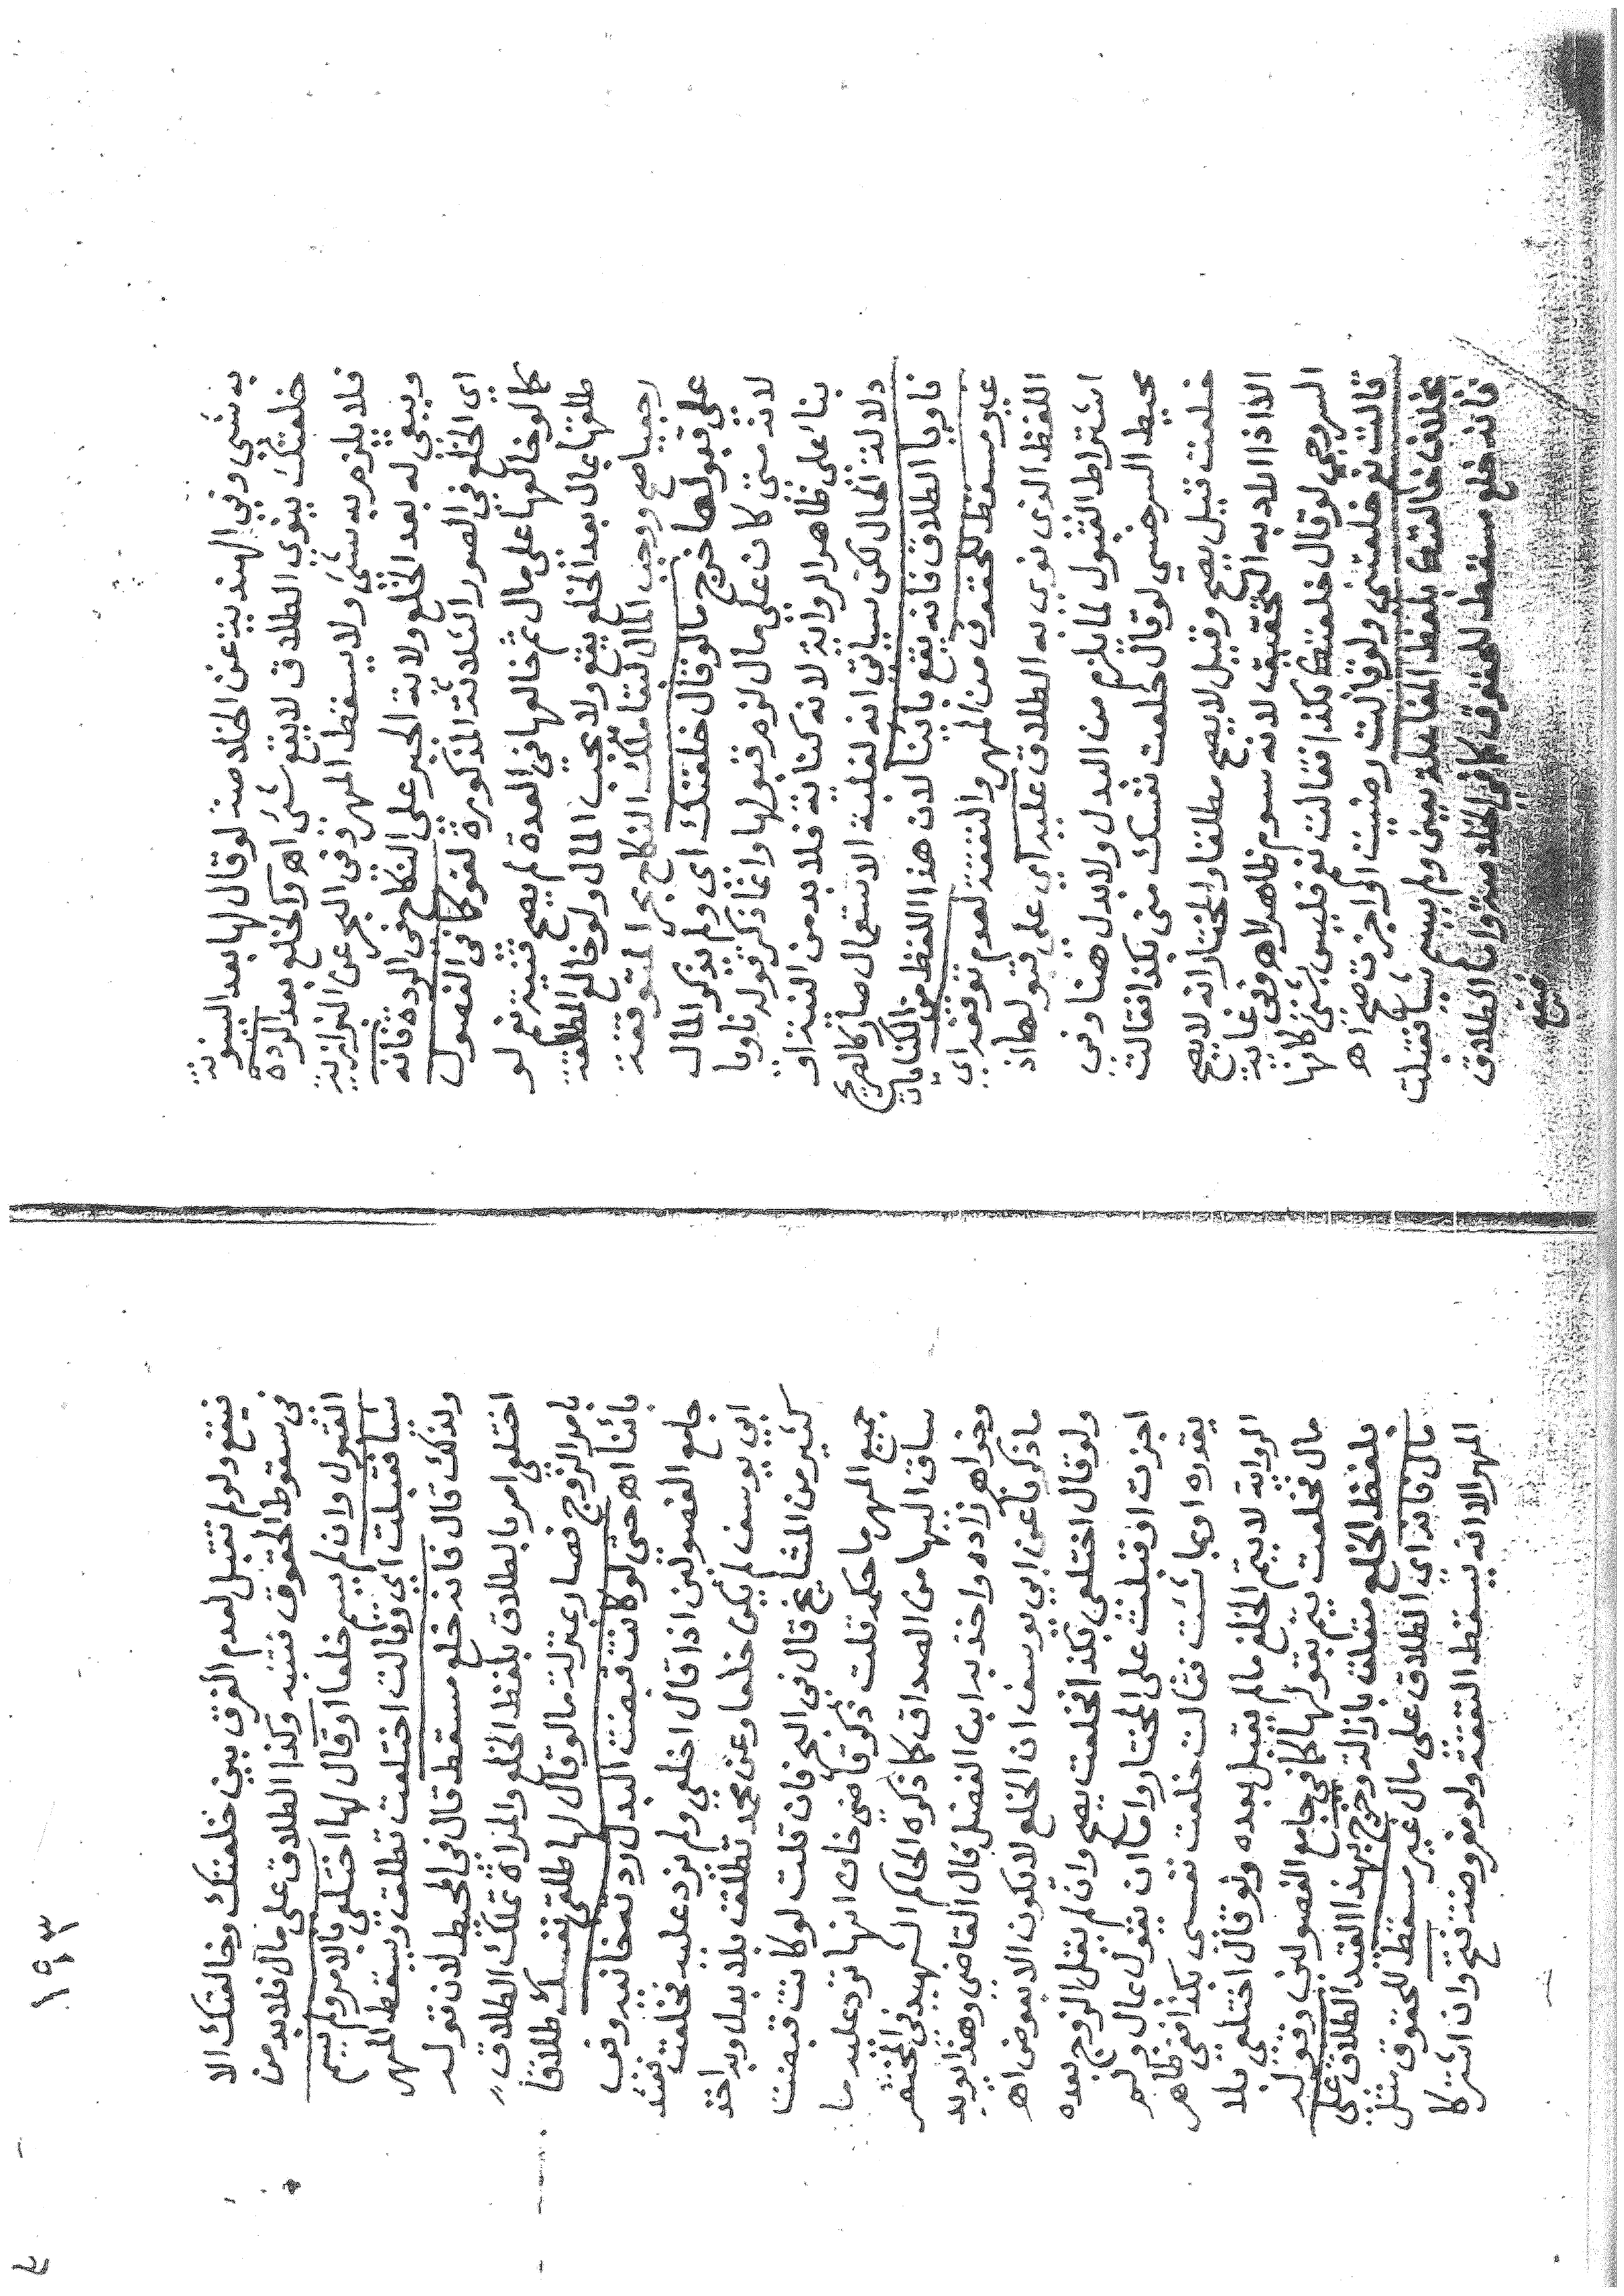 به شيء وفي الهندية عن الخلاصة لو قال لها بعد البينونة
خلعتك ينوي الطلاق لا يقع شيء اهـ والخلع بعد الردة
فلا يلزم به شيء ولا يسقط المهر وفي البحر عن البزازية
ويبقى له بعد الخلع ولاية الجبر على النكاح في الردة فانه
اي الخلع في الصور الثلاثة المذكورة لغو كما في الفصول
كما لو خالعها على مال ثم خالعها في العدة لم يصح قنية نعم لو
طلقها بمال بعد الخلع يقع ولا يجب المال ولو خالع المطلقة
رجعيا صح ووجب المال لبقا ملك النكاح بحر المتوقفة
على قبولها خرج ما لو قال خلعتك اي ولم يذكر المال
لانه متى كان على مال لزم قبولها وانما ذكر قوله ناويا
بنا على ظاهر الرواية لانه كناية فلا بد من النية او
دلالة الحال لكن سياتي انه لغلبة الاستعمال صار كالصريح
ناويا الطلاق فانه يقع بائنا لان هذا اللفظ من الكنايات
غير مسقط للحقوق من المهر والنفقة لعدم توقفه اي
اللفظ الذي نوى به الطلاق عليه اي على قبولها اذ
اشتراط القبول لما يلزم من البدل ولا بدل هنا وفي
محيط السرخسي لو قال خلعت نفسك مني بكذا فقالت
خلعت قيل يصح وقيل لا يصح مطلقا والمختار انه لا يصح
الا اذا اراد به التحقيق لانه سوم ظاهرا اهـ وفي غاية
السروجي لو قال خلعتك بكذا فقالت نعم فليس بشيء كانها
قالت نعم خلعتني ولو قالت رضيت او اجزت صح اهـ
بخلاف خالعتك بلفظ المفاعلة يعني ولم يسم شيأ فقبلت
فانه خلع مسقط للحقوق كما في الخلاصة واما الطلاق
فيقع
١٩٣
فيقع ولو لم تقبل لعدم الفرق بين خلعتك وخالعتك الا
في سقوط الحقوق فتنبه وكذا الطلاق على مال فلا بد من
القبول وان لم يسم خلعا او قال لها اختلعي بالامر ولم يسم
شيأ فقبلت اي وقالت اختلعت تطلق ويسقط المهر
ولذلك قال فانه خلع مسقط قال في المحيط لان قوله
اختلعي امر بالطلاق بلفظ الخلع والمراة تملك الطلاق
بامر الزوج فصار بمنزلة ما لو قال لها طلقي نفسك طلاقا
بائنا اهـ حتى لو كانت قبضت البدل ردته خانية وفي
جامع الفصولين اذا قال اخلعي ولم يزد عليه فخلعت فعند
ابي يوسف لم يكن خلعا وعن محمد تطلق بلا بدل وبه اخذ
كثير من المشايخ قال في البحر فان قلت لو كانت قبضت
جميع المهر ما حكمه قلت ذكر قاضي خان انها ترد عليه ما
ساق اليها من الصداق كما ذكره الحاكم الشهيد في المختصر
وخواهر زاده واخذ به ابن الفضل قال القاضي وهذا يويد
ما ذكرنا عن ابي يوسف ان الخلع لا يكون الا بعوض اهـ
ولو قال اختلعي بكذا فخلعت يصح وان لم يقل الزوج بعده
اجزت او قبلت على المختار واما ان يقول بمال ولم
يقدره او بما شئت فقالت خلعت نفسي بكذا ففي ظاهر
الرواية لا يتم الخلع ما لم يقبل بعده ولو قال اختلعي بلا
مال فخلعت يتم بقولها كما في جامع الفصولين وقوله
بلفظ الخلع متعلق بازالة وخرج بهذا القيد الطلاق على
مال فانه اي الطلاق على مال غير مسقط للحقوق مثل
المهر الا انه يسقط النفقة ولو مفروضة فتح وان اشتركا